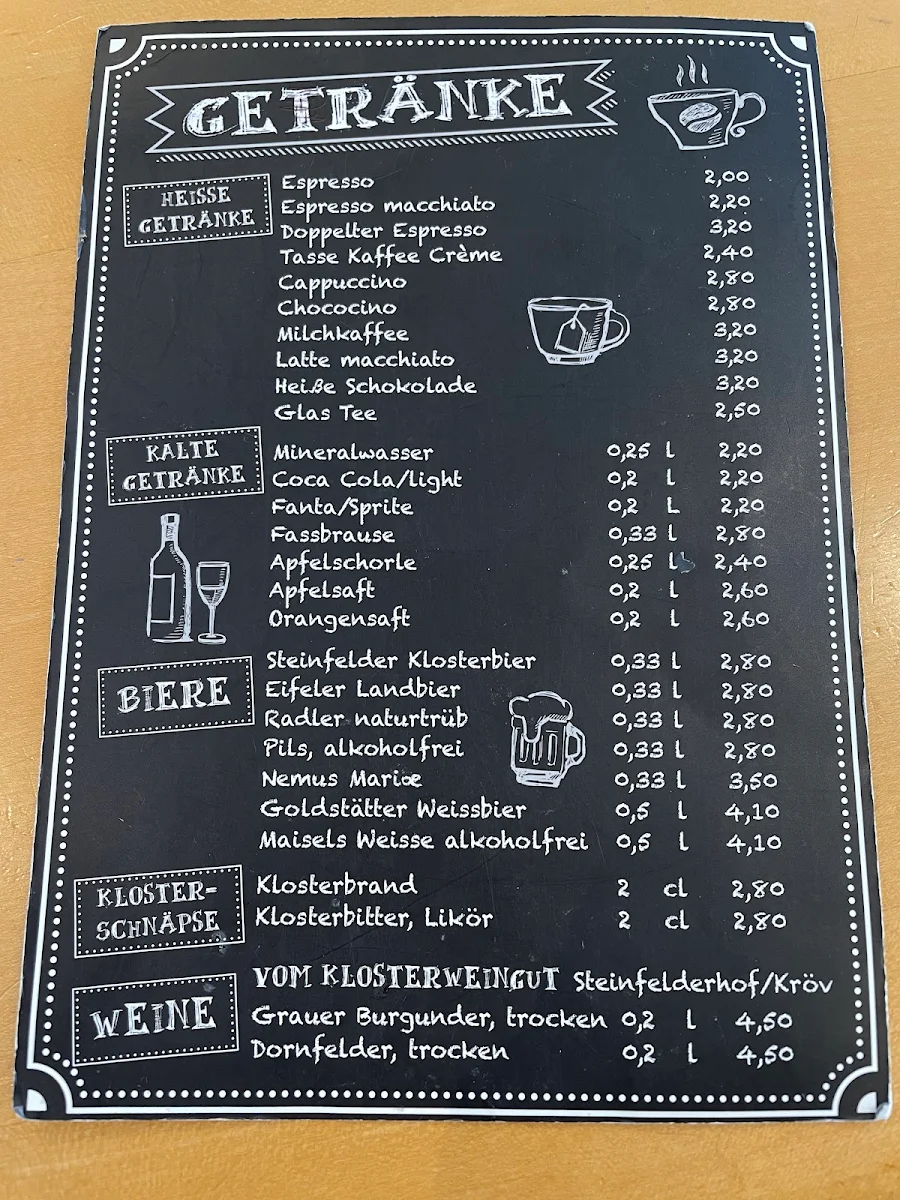 GETRÄNKE
HEISSE
GETRÄNKE
Espresso 2,00
Espresso macchiato 2,20
Doppelter Espresso 3,20
Tasse Kaffee Crème 2,40
Cappuccino 2,80
Chococino 2,80
Milchkaffee 3,20
Latte macchiato 3,20
Heiße Schokolade 3,20
Glas Tee 2,50
KALTE
GETRÄNKE
Mineralwasser 0,25 l 2,20
Coca Cola/light 0,2 l 2,20
Fanta/Sprite 0,2 L 2,20
Fassbrause 0,33 l 2,80
Apfelschorle 0,25 l 2,40
Apfelsaft 0,2 l 2,60
Orangensaft 0,2 l 2,60
BIERE
Steinfelder Klosterbier 0,33 l 2,80
Eifeler Landbier 0,33 l 2,80
Radler naturtrüb 0,33 l 2,80
Pils, alkoholfrei 0,33 l 2,80
Nemus Mariæ 0,33 l 3,50
Goldstätter Weissbier 0,5 l 4,10
Maisels Weisse alkoholfrei 0,5 l 4,10
KLOSTER-
SCHNÄPSE
Klosterbrand 2 cl 2,80
Klosterbitter, Likör 2 cl 2,80
WEINE
VOM KLOSTERWEINGUT Steinfelderhof/Kröv
Grauer Burgunder, trocken 0,2 l 4,50
Dornfelder, trocken 0,2 l 4,50